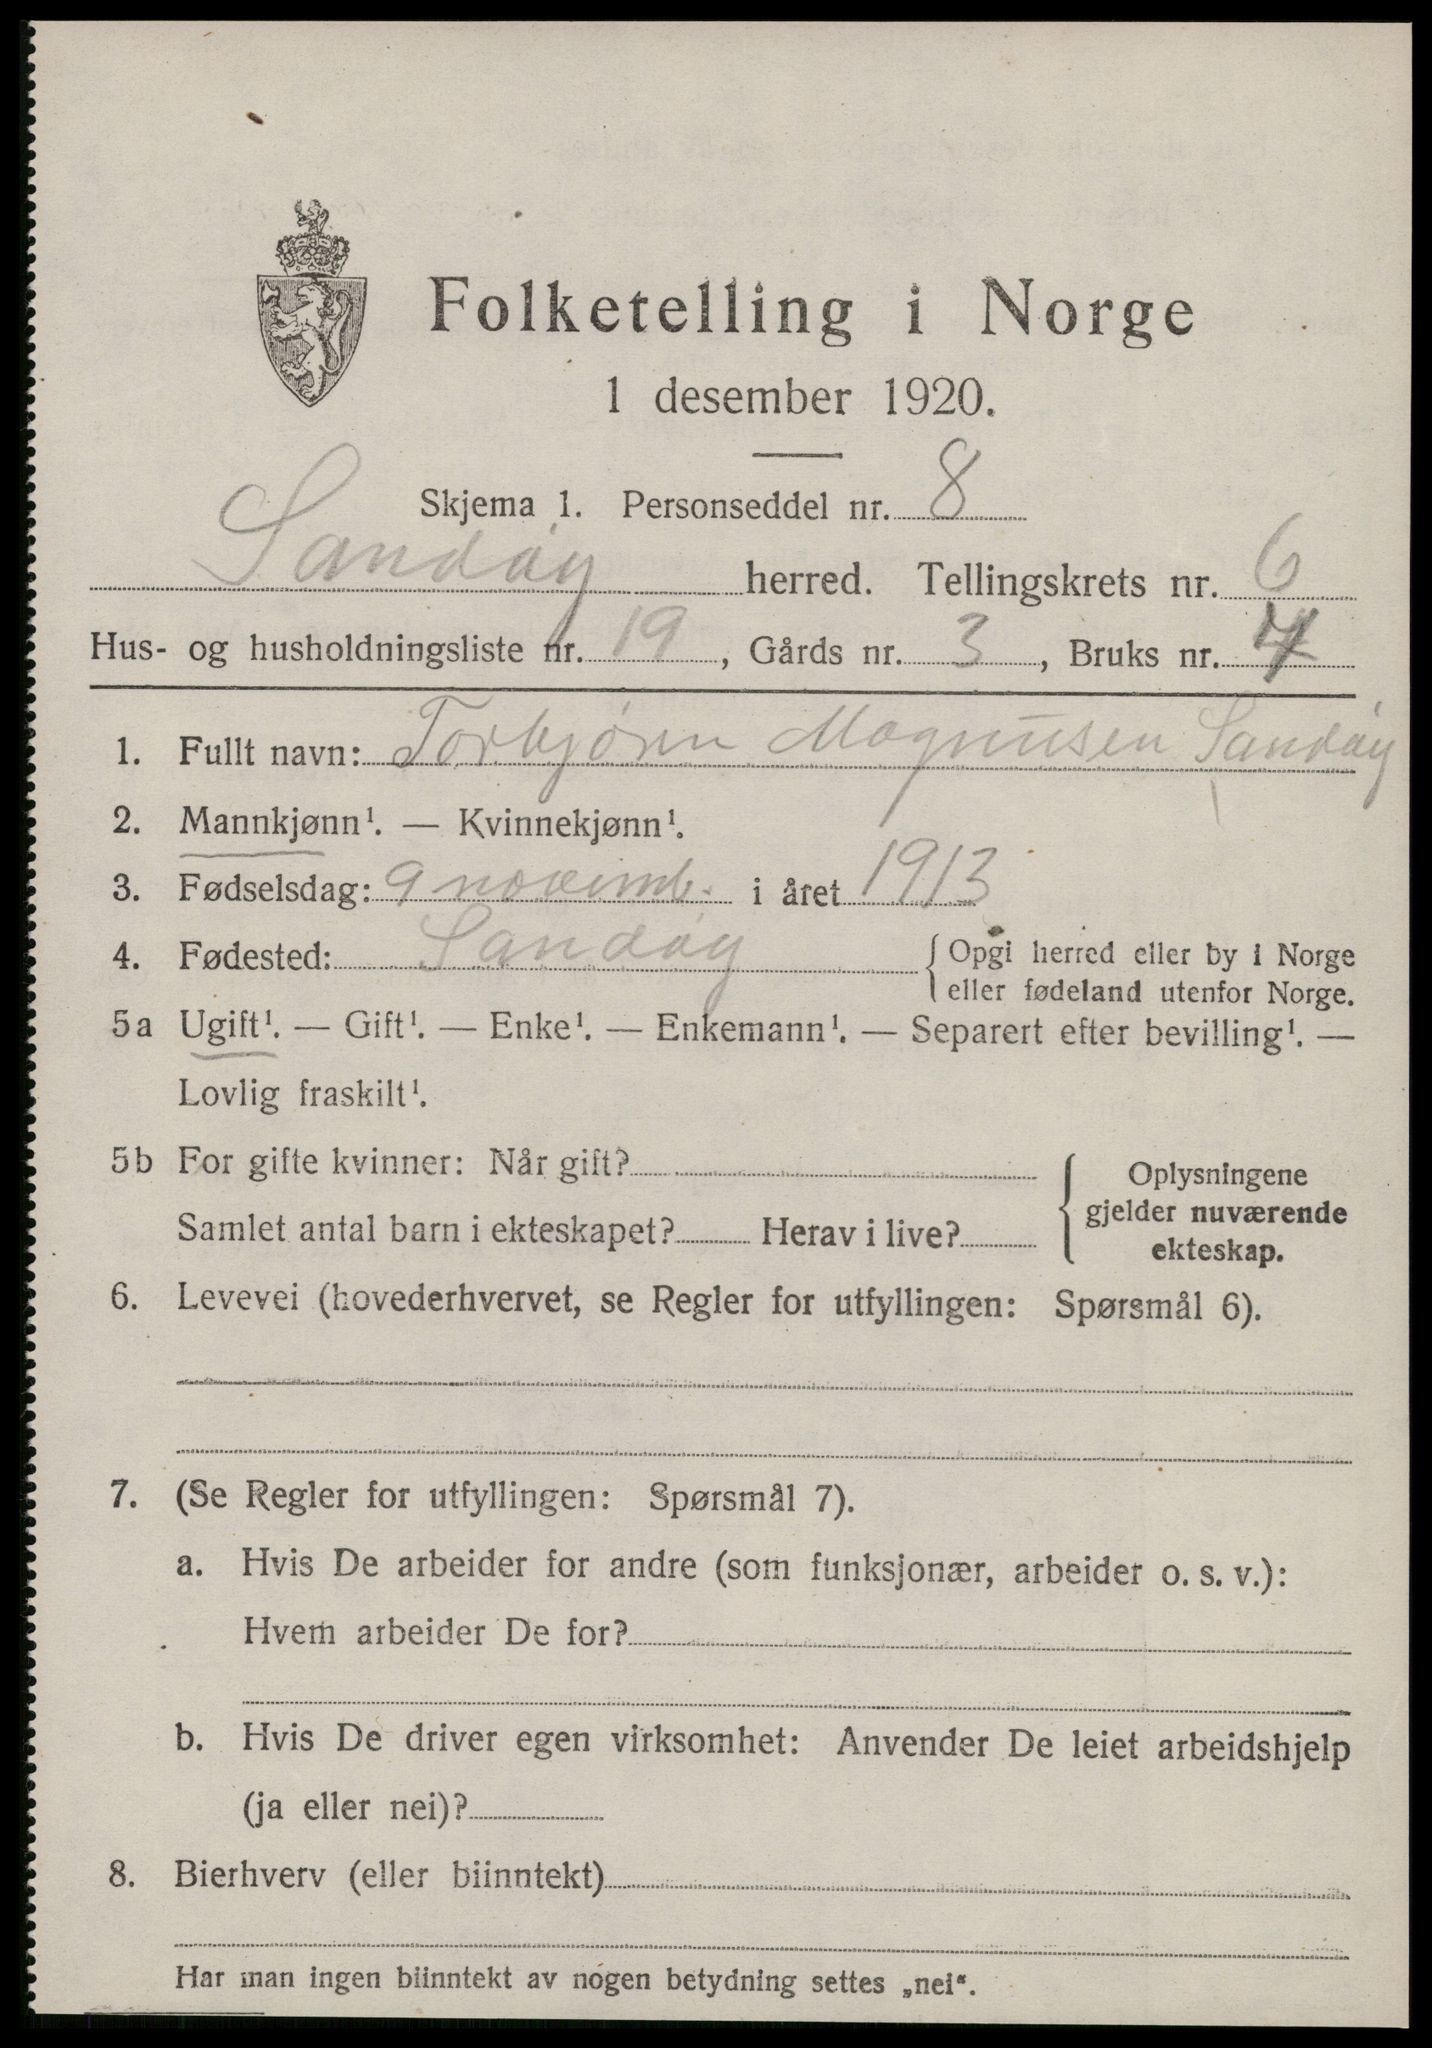 Folketelling i Norge
1 desember 1920.
Skjema 1. Personseddel nr. 8
Sandøy herred. Tellingskrets nr. 6
Hus- og husholdningsliste nr. 19, Gårds nr. 3, Bruks nr.
1. Fullt navn: Torbjørn Magnusen Sandøy
2. Mannkjønn¹. — Kvinnekjønn¹.
3. Fødselsdag: 9 novemb. i året 1913
4. Fødested: Sandøy { Opgi herred eller by i Norge
eller fødeland utenfor Norge.
5a Ugift¹. — Gift¹. — Enke¹. — Enkemann¹. — Separert efter bevilling¹. —
Lovlig fraskilt¹.
5b For gifte kvinner: Når gift?
Samlet antal barn i ekteskapet? Herav i live?
Oplysningene
gjelder nuværende
ekteskap.
6. Levevei (hovederhvervet, se Regler for utfyllingen: Spørsmål 6).
7. (Se Regler for utfyllingen: Spørsmål 7).
a. Hvis De arbeider for andre (som funksjonær, arbeider o. s. v.):
Hvem arbeider De for?
b. Hvis De driver egen virksomhet: Anvender De leiet arbeidshjelp
(ja eller nei)?
8. Bierhverv (eller biinntekt)
Har man ingen biinntekt av nogen betydning settes „nei“.